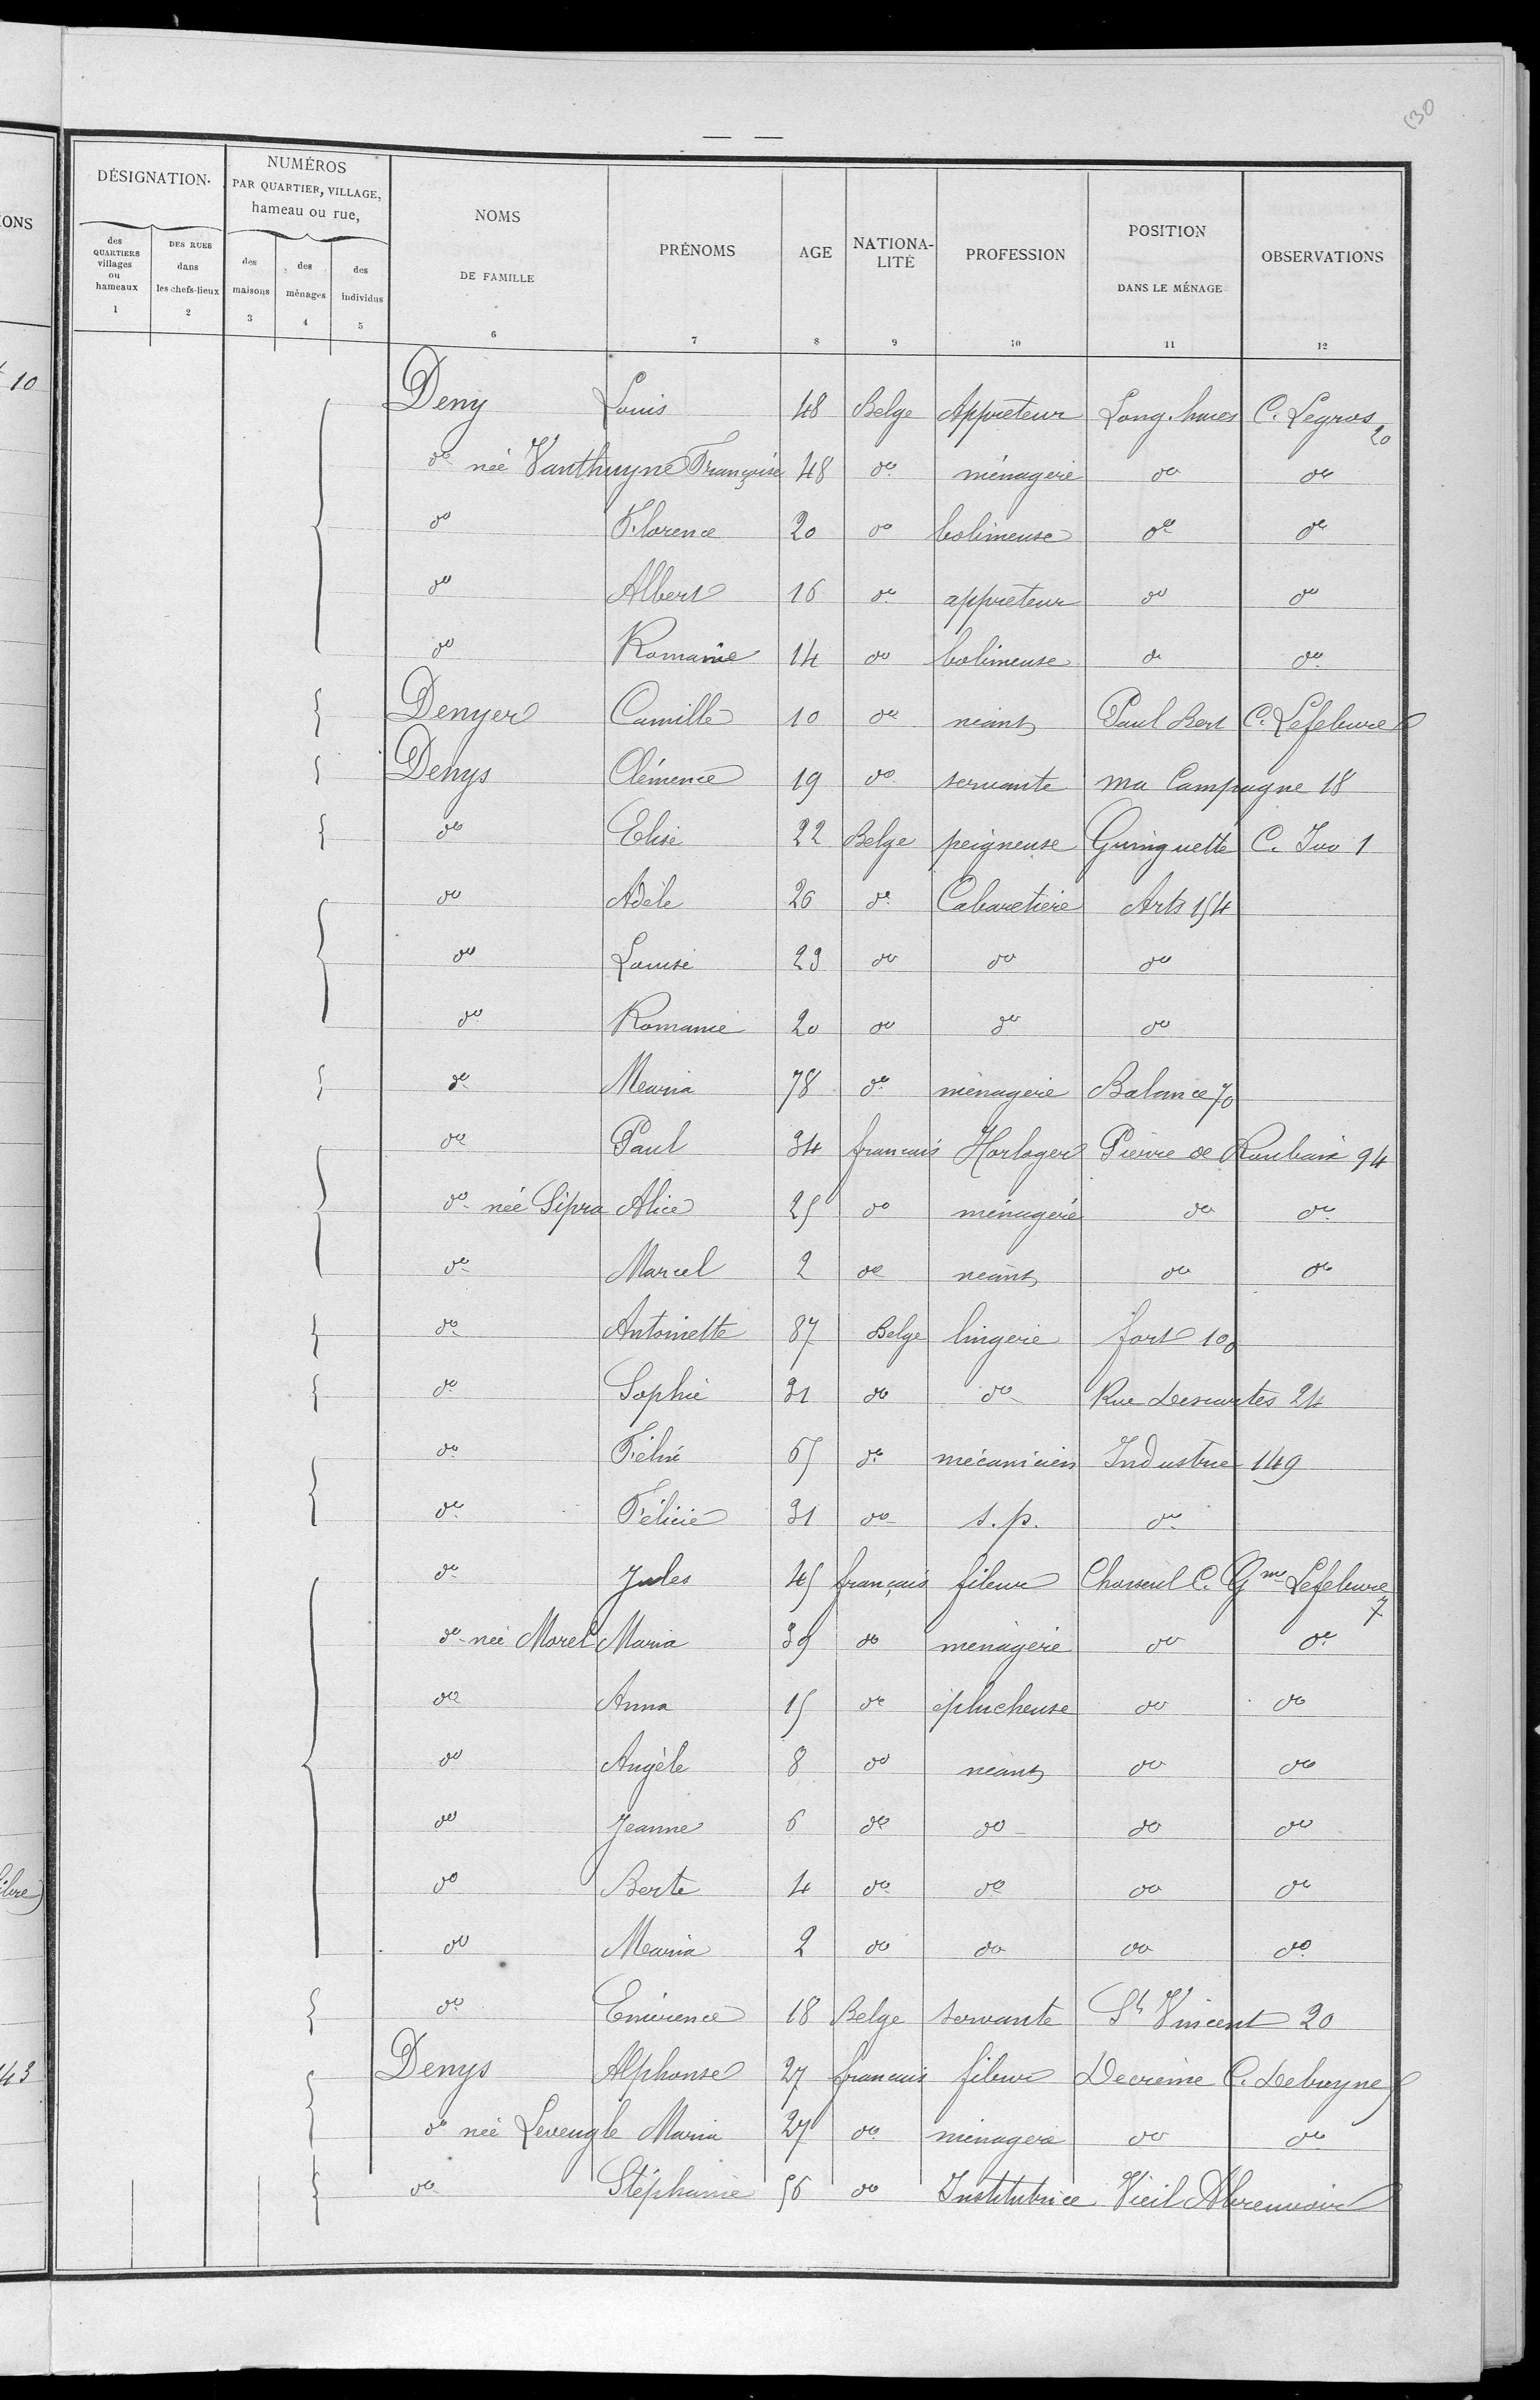 130
— —
DÉSIGNATION.
NUMÉROS
PAR QUARTIER, VILLAGE,
hameau ou rue,
des QUARTIERS villages ou hameaux 1
DES RUES dans les chefs-lieux 2
des maisons 3
des ménages 4
des individus 5
NOMS DE FAMILLE 6
PRÉNOMS 7
AGE 8
NATIONA-LITÉ 9
PROFESSION 10
POSITION DANS LE MÉNAGE 11
OBSERVATIONS 12
IONS
10
libre)
43
Deny Louis 48 Belge Appreteur Long. haies C. Legros 20
do née Vanthuyne Françoise 48 do ménagère do do
do Florence 20 do bobineuse do do
do Albert 16 do appreteur do do
do Romanie 14 do bobineuse do do
Denyer Camille 10 do néant Paul Bert C. Lefebvre
Denys Clémence 19 do servante ma Campagne 18
do Elise 22 Belge peigneuse Guinguette C. Ivo 1
do Adèle 26 do Cabaretière Arts 154
do Louise 23 do do do
do Romanie 20 do do do
do Maria 78 do ménagère Balance 70
do Paul 34 français Horloger Pierre de Roubaix 94
do née Sipra Alice 25 do ménagère do do
do Marcel 2 do néant do do
do Antoinette 87 Belge lingère fort 100
do Sophie 31 do do Rue Descartes 24
do Félix 65 do mécanicien Industrie 149
do Félicie 31 do s.p. do
do Jules 45 français fileur Chasseul C. Gme Lefebvre 7
do née Morel Maria 39 do ménagère do do
do Anna 15 do éplucheuse do do
do Angèle 8 do néant do do
do Jeanne 6 do do do do
do Berte 4 do do do do
do Maria 2 do do do do
do Emérence 18 Belge servante St Vincent 20
Denys Alphonse 27 français fileur Decrème C. Debuyne
do née Leveugle Maria 27 do ménagère do do
do Stéphanie 56 do Institutrice Vieil Abreuvoir